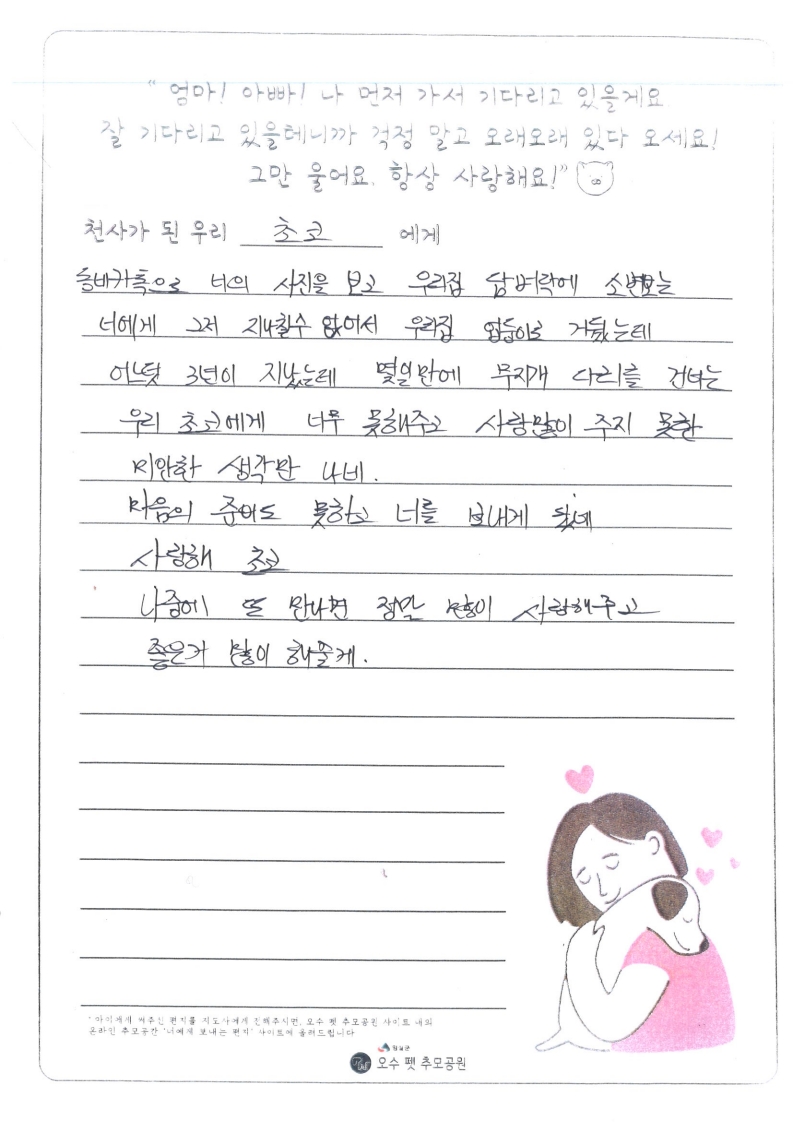 “ 엄마! 아빠! 나 먼저 가서 기다리고 있을게요.
잘 기다리고 있을테니까 걱정 말고 오래오래 있다 오세요!
그만 울어요. 항상 사랑해요!”
천사가 된 우리 초코 에게
너의 사진을 보고 우리집 담벼락에 소변보는
너에게 그저 지나칠수 없어서 우리집 업둥이로 거뒀는데
어느덧 3년이 지났는데 몇일만에 무지개 다리를 건너는
우리 초코에게 너무 못해주고 사랑많이 주지 못한
미안한 생각만 나네.
마음의 준비도 못하고 너를 보내게 됐네
사랑해 초코
나중에 또 만나면 정말 많이 사랑해주고
좋은거 많이 해줄게.
* 아이에게 써주신 편지를 지도사에게 전해주시면, 오수 펫 추모공원 사이트 내의
온라인 추모공간 '너에게 보내는 편지' 사이트에 올려드립니다
임실군
오수 펫 추모공원